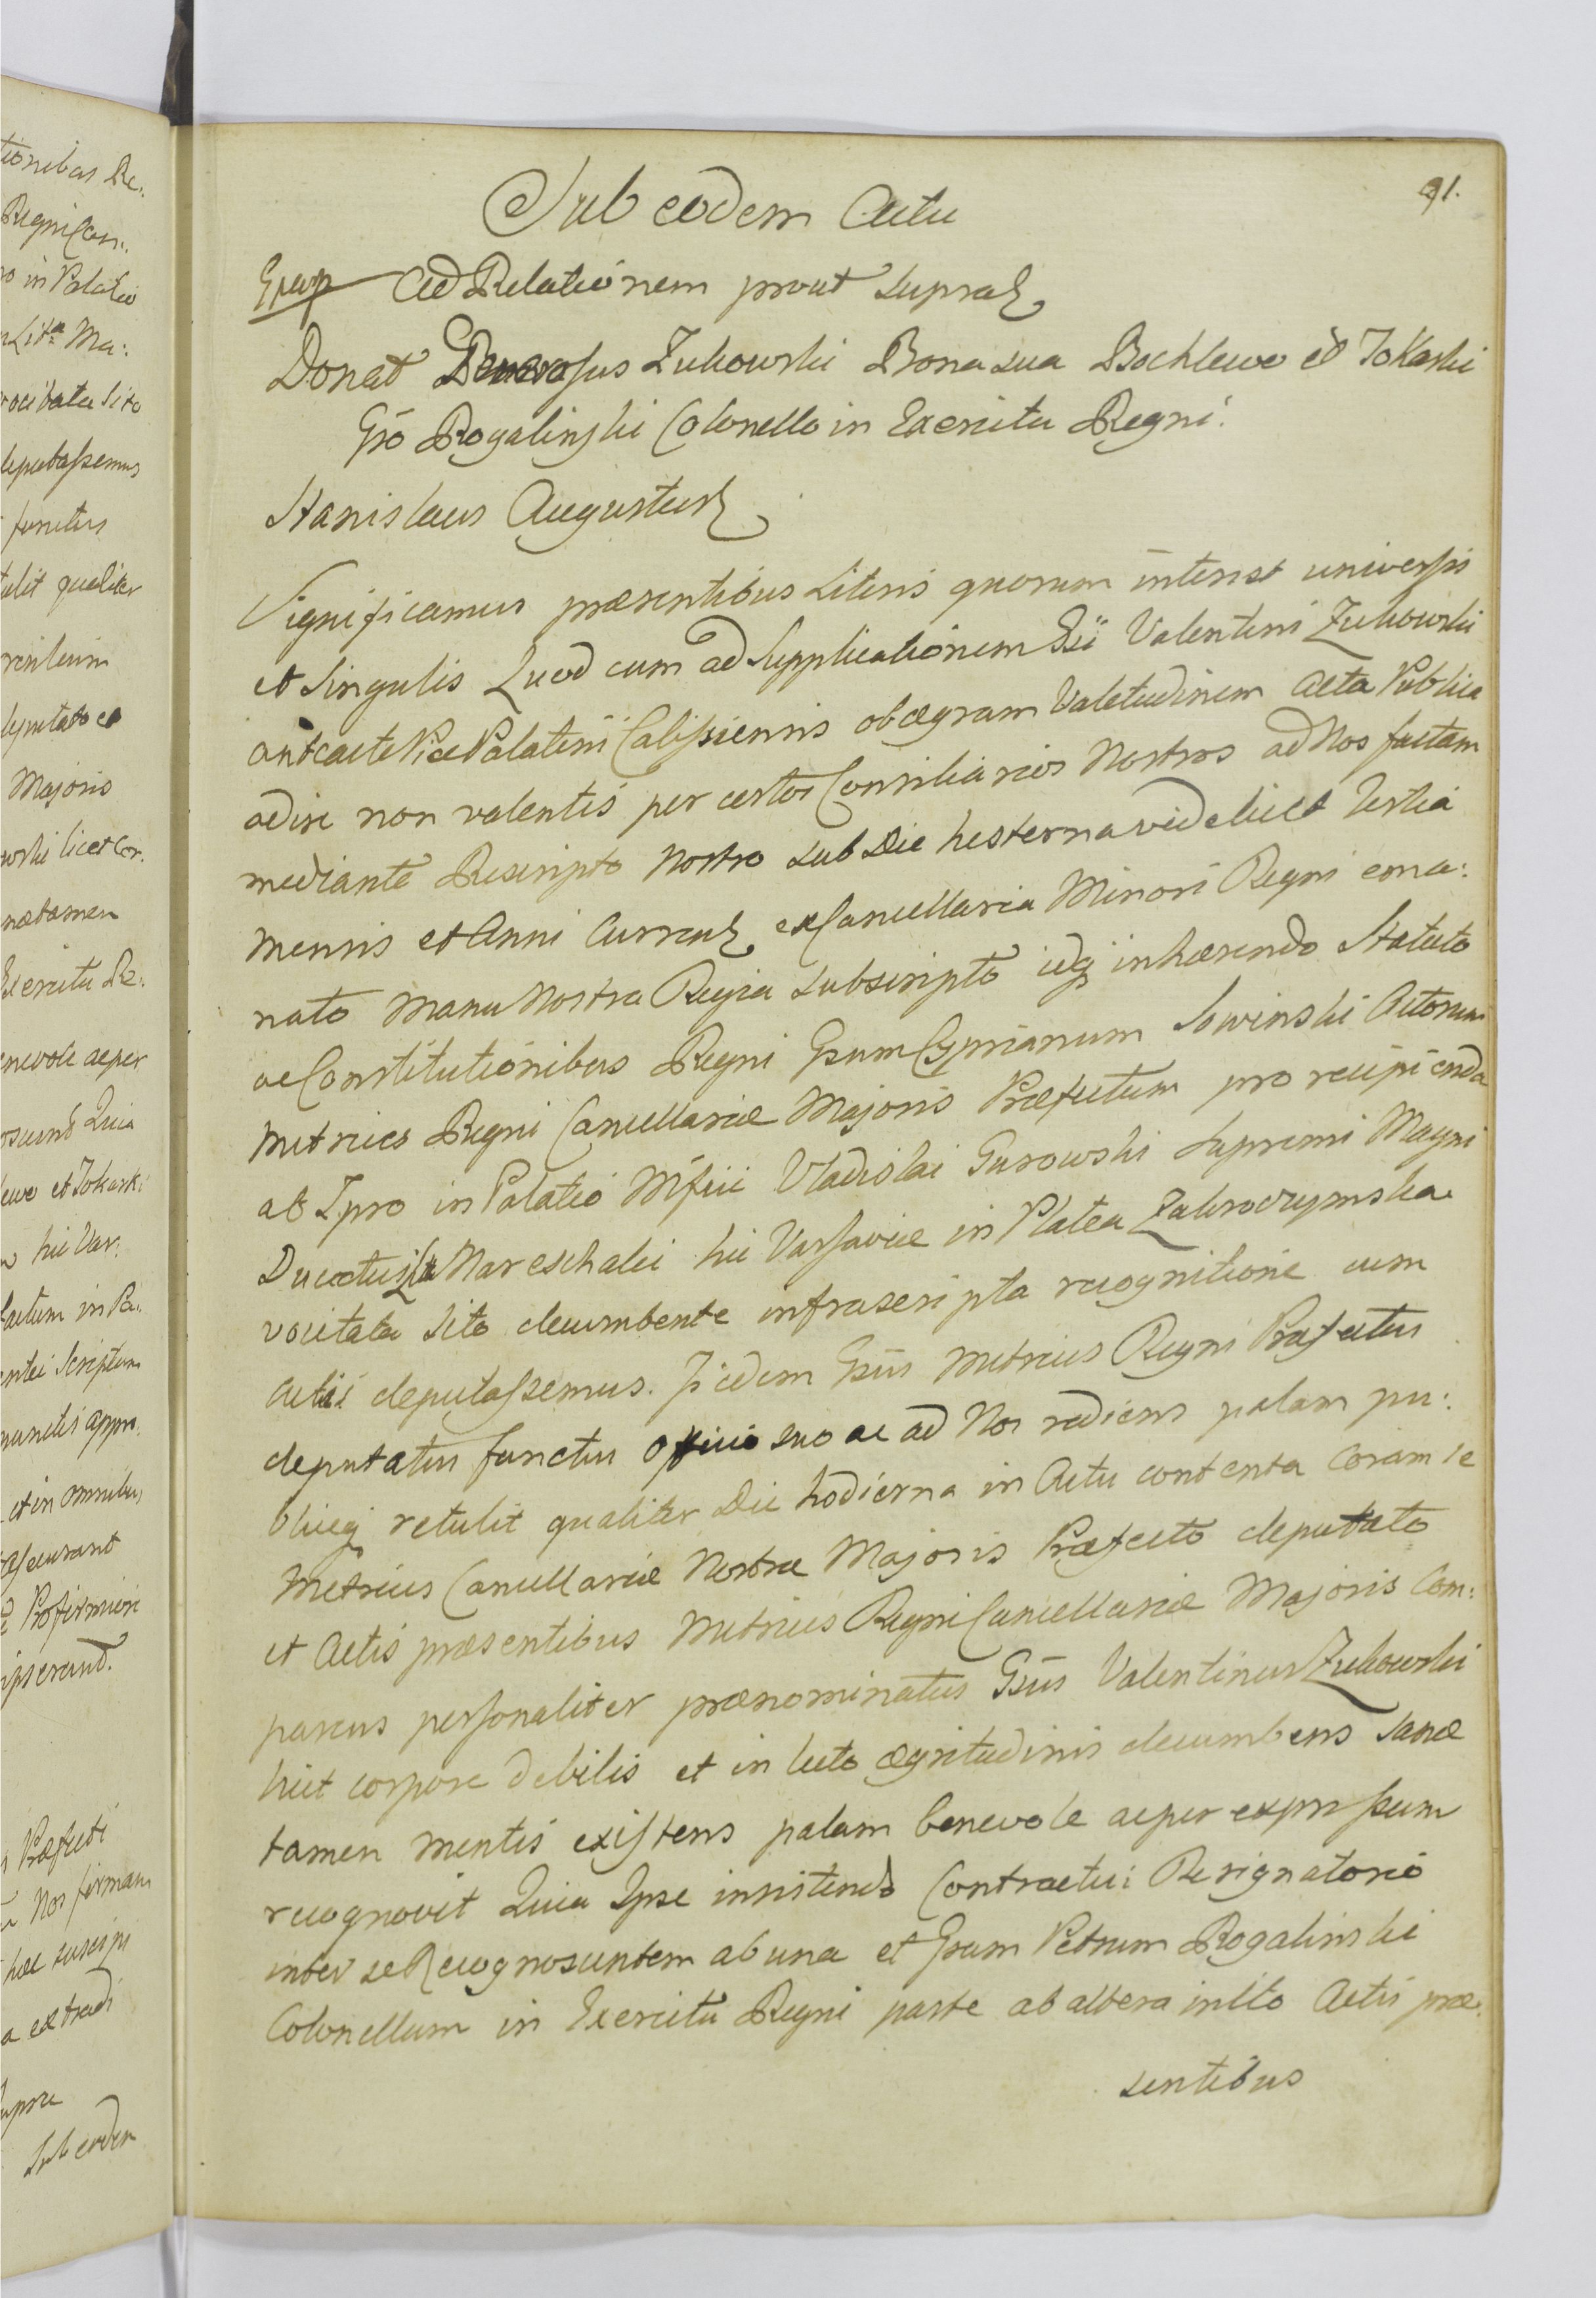 tionibus Re:
Regni Can:
ro in Palatio
Lita Ma:
vocitata Sito
deputassemus
functus
tulit qualiter
deputato et
Majoris
wski licet Cor:
mentamen
Exercitu Re:
enevole ac per
oscunt Quia
lewo et Tokarki
hic Var:
factum in Pa:
Scriptum
appro:
et in omnibus
assecurant
Profirmiori
ipserunt.
Præfecti
Nos firmam
hac suscipi
a extradi
supra
Sub eodem
91.
Sub eodem Actu
Ad Relationem prout supra
Donat Generosus Zukowski Bona sua Bochlewo et Tokarki
Gso Rogalinski Colonello in Exercitu Regni.
Stanislaus Augustus
Significamus præsentibus Literis quorum interest universis
et Singulis Quod cum ad Supplicationem Gsi Valentini Zukowski
antea Vice Palatini Calissiensis ob ægram Valetudinem Acta Publica
adire non valentis per certos Consiliarios Nostros ad Nos factam
mediante Rescripto Nostro sub Die hesterna videlicet tertia
Mensis et Anni Curren ex Cancellaria Minori Regni ema:
nato Manu Nostra Regia subscripto idq inhærendo Statuto
ac Constitutionibus Regni Gsum Cyprianum Sowinski Actorum
Metrices Regni Cancellariæ Majoris Præfectum pro recipienda
ab Ipso in Palatio Mfici Vladislai Gurowski Supremi Magni
Ducatus Lit Mareschalci hic Varsaviæ in Platea Zakroczymska
vocitata Sito decumbente infrascripta recognitione cum
Actis deputassemus. Is idem Gsus Metrices Regni Præfectus
deputatus functus Officio suo ac ad Nos rediens palam pu:
bliceq retulit qualiter Die hodierna in Actu contenta Coram se
Metrices Cancellariæ Nostræ Majoris Præfecto deputato
et Actis præsentibus Metrices Regni Cancellariæ Majoris Com:
parens personaliter prænominatus Gsus Valentinus Zukowski
licet corpore debilis et in lecto ægritudinis decumbens sanæ
tamen mentis existens palam benevole ac per expressum
recognovit Quia Ipse insistendo Contractui Resignatorio
inter se Recognoscentem ab una et Gsum Petrum Rogalinski
Colonellum in Exercitu Regni parte ab altera inito Actis præ:
sentibus